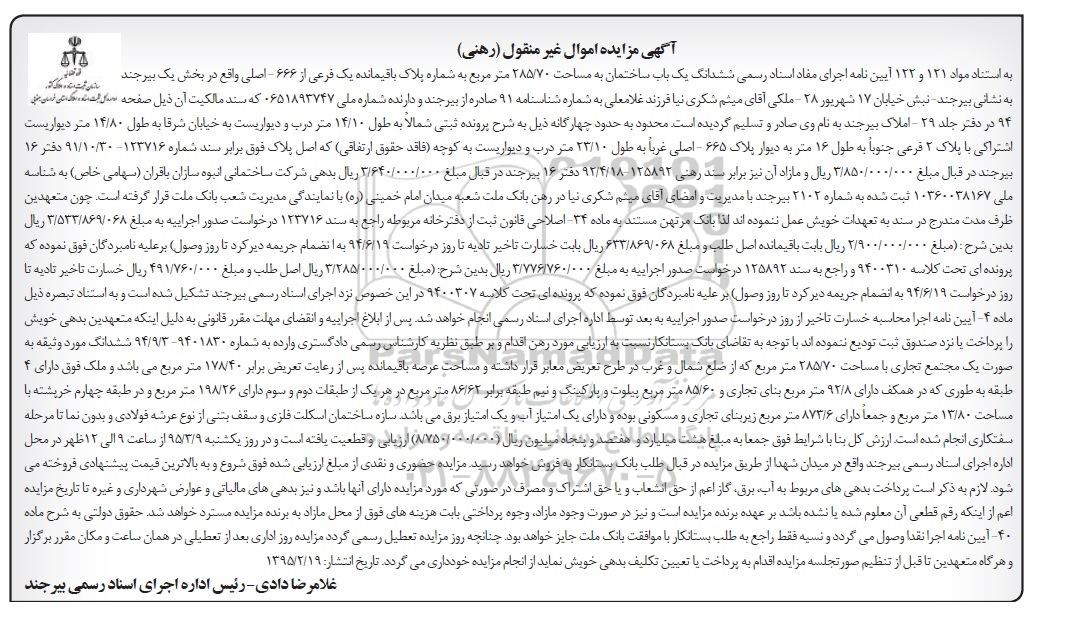 آگهی مزایده اموال غیر منقول (رهنی)
به استناد مواد ۱۲۱ و ۱۲۲ آیین نامه اجرای مفاد اسناد رسمی ششدانگ یک باب ساختمان به مساحت ۲۸۵/۷۰ متر مربع به شماره پلاک باقیمانده یک فرعی از ۶۶۶ - اصلی واقع در بخش یک بیرجند
به نشانی بیرجند- نبش خیابان ۱۷ شهریور ۲۸ - ملکی آقای میثم شکری نیا فرزند غلامعلی به شماره شناسنامه ۹۱ صادره از بیرجند و دارنده شماره ملی ۰۶۵۱۸۹۳۷۴۷ که سند مالکیت آن ذیل صفحه
۹۴ در دفتر جلد ۲۹ - املاک بیرجند به نام وی صادر و تسلیم گردیده است. محدود به حدود چهارگانه ذیل به شرح پرونده ثبتی شمالاً به طول ۱۴/۱۰ متر درب و دیواریست به خیابان شرقا به طول ۱۴/۸۰ متر دیواریست
اشتراکی با پلاک ۲ فرعی جنوباً به طول ۱۶ متر به دیوار پلاک ۶۶۵ - اصلی غرباً به طول ۲۳/۱۰ متر درب و دیواریست به کوچه (فاقد حقوق ارتفاقی) که اصل پلاک فوق برابر سند شماره ۱۲۳۷۱۶- ۹۱/۱۰/۳۰ دفتر ۱۶
بیرجند در قبال مبلغ ۳/۸۵۰/۰۰۰/۰۰۰ ریال و مازاد آن نیز برابر سند رهنی ۱۲۵۸۹۲-۹۲/۴/۱۸ دفتر ۱۶ بیرجند در قبال مبلغ ۳/۶۴۰/۰۰۰/۰۰۰ ریال بدهی شرکت ساختمانی انبوه سازان باقران (سهامی خاص) به شناسه
ملی ۱۰۳۶۰۰۳۸۱۶۷ ثبت شده به شماره ۲۱۰۲ بیرجند با مدیریت و امضای آقای میثم شکری نیا در رهن بانک ملت شعبه میدان امام خمینی (ره) با نمایندگی مدیریت شعب بانک ملت قرار گرفته است. چون متعهدین
ظرف مدت مندرج در سند به تعهدات خویش عمل ننموده اند لذا بانک مرتهن مستند به ماده ۳۴- اصلاحی قانون ثبت از دفترخانه مربوطه راجع به سند ۱۲۳۷۱۶ درخواست صدور اجراییه به مبلغ ۳/۵۳۳/۸۶۹/۰۶۸ ریال
بدین شرح : (مبلغ ۲/۹۰۰/۰۰۰/۰۰۰ ریال بابت باقیمانده اصل طلب و مبلغ ۶۳۳/۸۶۹/۰۶۸ ریال بابت خسارت تاخیر تادیه تا روز درخواست ۹۴/۶/۱۹ به انضمام جریمه دیر کرد تا روز وصول) برعلیه نامبردگان فوق نموده که
پرونده ای تحت کلاسه ۹۴۰۰۳۱۰ و راجع به سند ۱۲۵۸۹۲ درخواست صدور اجراییه به مبلغ ۳/۷۷۶/۷۶۰/۰۰۰ ریال بدین شرح: (مبلغ ۳/۲۸۵/۰۰۰/۰۰۰ ریال اصل طلب و مبلغ ۴۹۱/۷۶۰/۰۰۰ ریال خسارت تاخیر تادیه تا
روز درخواست ۹۴/۶/۱۹ به انضمام جریمه دیر کرد تا روز وصول) بر علیه نامبردگان فوق نموده که پرونده ای تحت کلاسه ۹۴۰۰۳۰۷ در این خصوص نزد اجرای اسناد رسمی بیرجند تشکیل شده است و به استناد تبصره ذیل
ماده ۴- آیین نامه اجرا محاسبه خسارت تاخیر از روز درخواست صدور اجراییه به بعد توسط اداره اجرای اسناد رسمی انجام خواهد شد. پس از ابلاغ اجراییه و انقضای مهلت مقرر قانونی به دلیل اینکه متعهدین بدهی خویش
را پرداخت یا نزد صندوق ثبت تودیع ننموده اند با توجه به تقاضای بانک بستانکار نسبت به ارزیابی مورد رهن اقدام و بر طبق نظریه کارشناس رسمی دادگستری وارده به شماره ۹۴۰۱۸۳۰- ۹۴/۹/۳ ششدانگ مورد وثیقه به
صورت یک مجتمع تجاری با مساحت ۲۸۵/۷۰ متر مربع که از ضلع شمال و غرب در طرح تعریض معابر قرار داشته و مساحت عرصه باقیمانده پس از رعایت تعریض برابر ۱۷۸/۴۰ متر مربع می باشد و ملک فوق دارای ۴
طبقه به طوری که در همکف دارای ۹۲/۸ متر مربع بنای تجاری و ۸۵/۶۰ متر مربع پیلوت و پارکینگ و نیم طبقه برابر ۸۶/۶۲ متر مربع در هر یک از طبقات دوم و سوم دارای ۱۹۸/۲۶ متر مربع و در طبقه چهارم خرپشته با
مساحت ۱۳/۸۰ متر مربع و جمعاً دارای ۸۷۳/۶ متر مربع زیربنای تجاری و مسکونی بوده و دارای یک امتیاز آب و یک امتیاز برق می باشد. سازه ساختمان اسکلت فلزی و سقف بتنی از نوع عرشه فولادی و بدون نما تا مرحله
سفتکاری انجام شده است. ارزش کل بنا با شرایط فوق جمعا به مبلغ هشت میلیارد و هفتصد و پنجاه میلیون ریال (۸/۷۵۰/۰۰۰/۰۰۰) ارزیابی و قطعیت یافته است و در روز یکشنبه ۹۵/۳/۹ از ساعت ۹ الی ۱۲ ظهر در محل
اداره اجرای اسناد رسمی بیرجند واقع در میدان شهدا از طریق مزایده در قبال طلب بانک بستانکار به فروش خواهد رسید. مزایده حضوری و نقدی از مبلغ ارزیابی شده فوق شروع و به بالاترین قیمت پیشنهادی فروخته می
شود. لازم به ذکر است پرداخت بدهی های مربوط به آب، برق، گاز اعم از حق انشعاب و یا حق اشتراک و مصرف در صورتی که مورد مزایده دارای آنها باشد و نیز بدهی های مالیاتی و عوارض شهرداری و غیره تا تاریخ مزایده
اعم از اینکه رقم قطعی آن معلوم شده یا نشده باشد بر عهده برنده مزایده است و نیز در صورت وجود مازاد، وجوه پرداختی بابت هزینه های فوق از محل مازاد به برنده مزایده مسترد خواهد شد. حقوق دولتی به شرح ماده
۴۰- آیین نامه اجرا نقدا وصول می گردد و نسیه فقط راجع به طلب بستانکار با موافقت بانک ملت جایز خواهد بود. چنانچه روز مزایده تعطیل رسمی گردد مزایده روز اداری بعد از تعطیلی در همان ساعت و مکان مقرر برگزار
و هرگاه متعهدین تا قبل از تنظیم صورتجلسه مزایده اقدام به پرداخت یا تعیین تکلیف بدهی خویش نماید از انجام مزایده خودداری می گردد. تاریخ انتشار: ۱۳۹۵/۲/۱۹
غلامرضا دادی- رئیس اداره اجرای اسناد رسمی بیرجند
ParsNamadData
۰۲۱-۸۸۳۴۹۶۷۰-۵